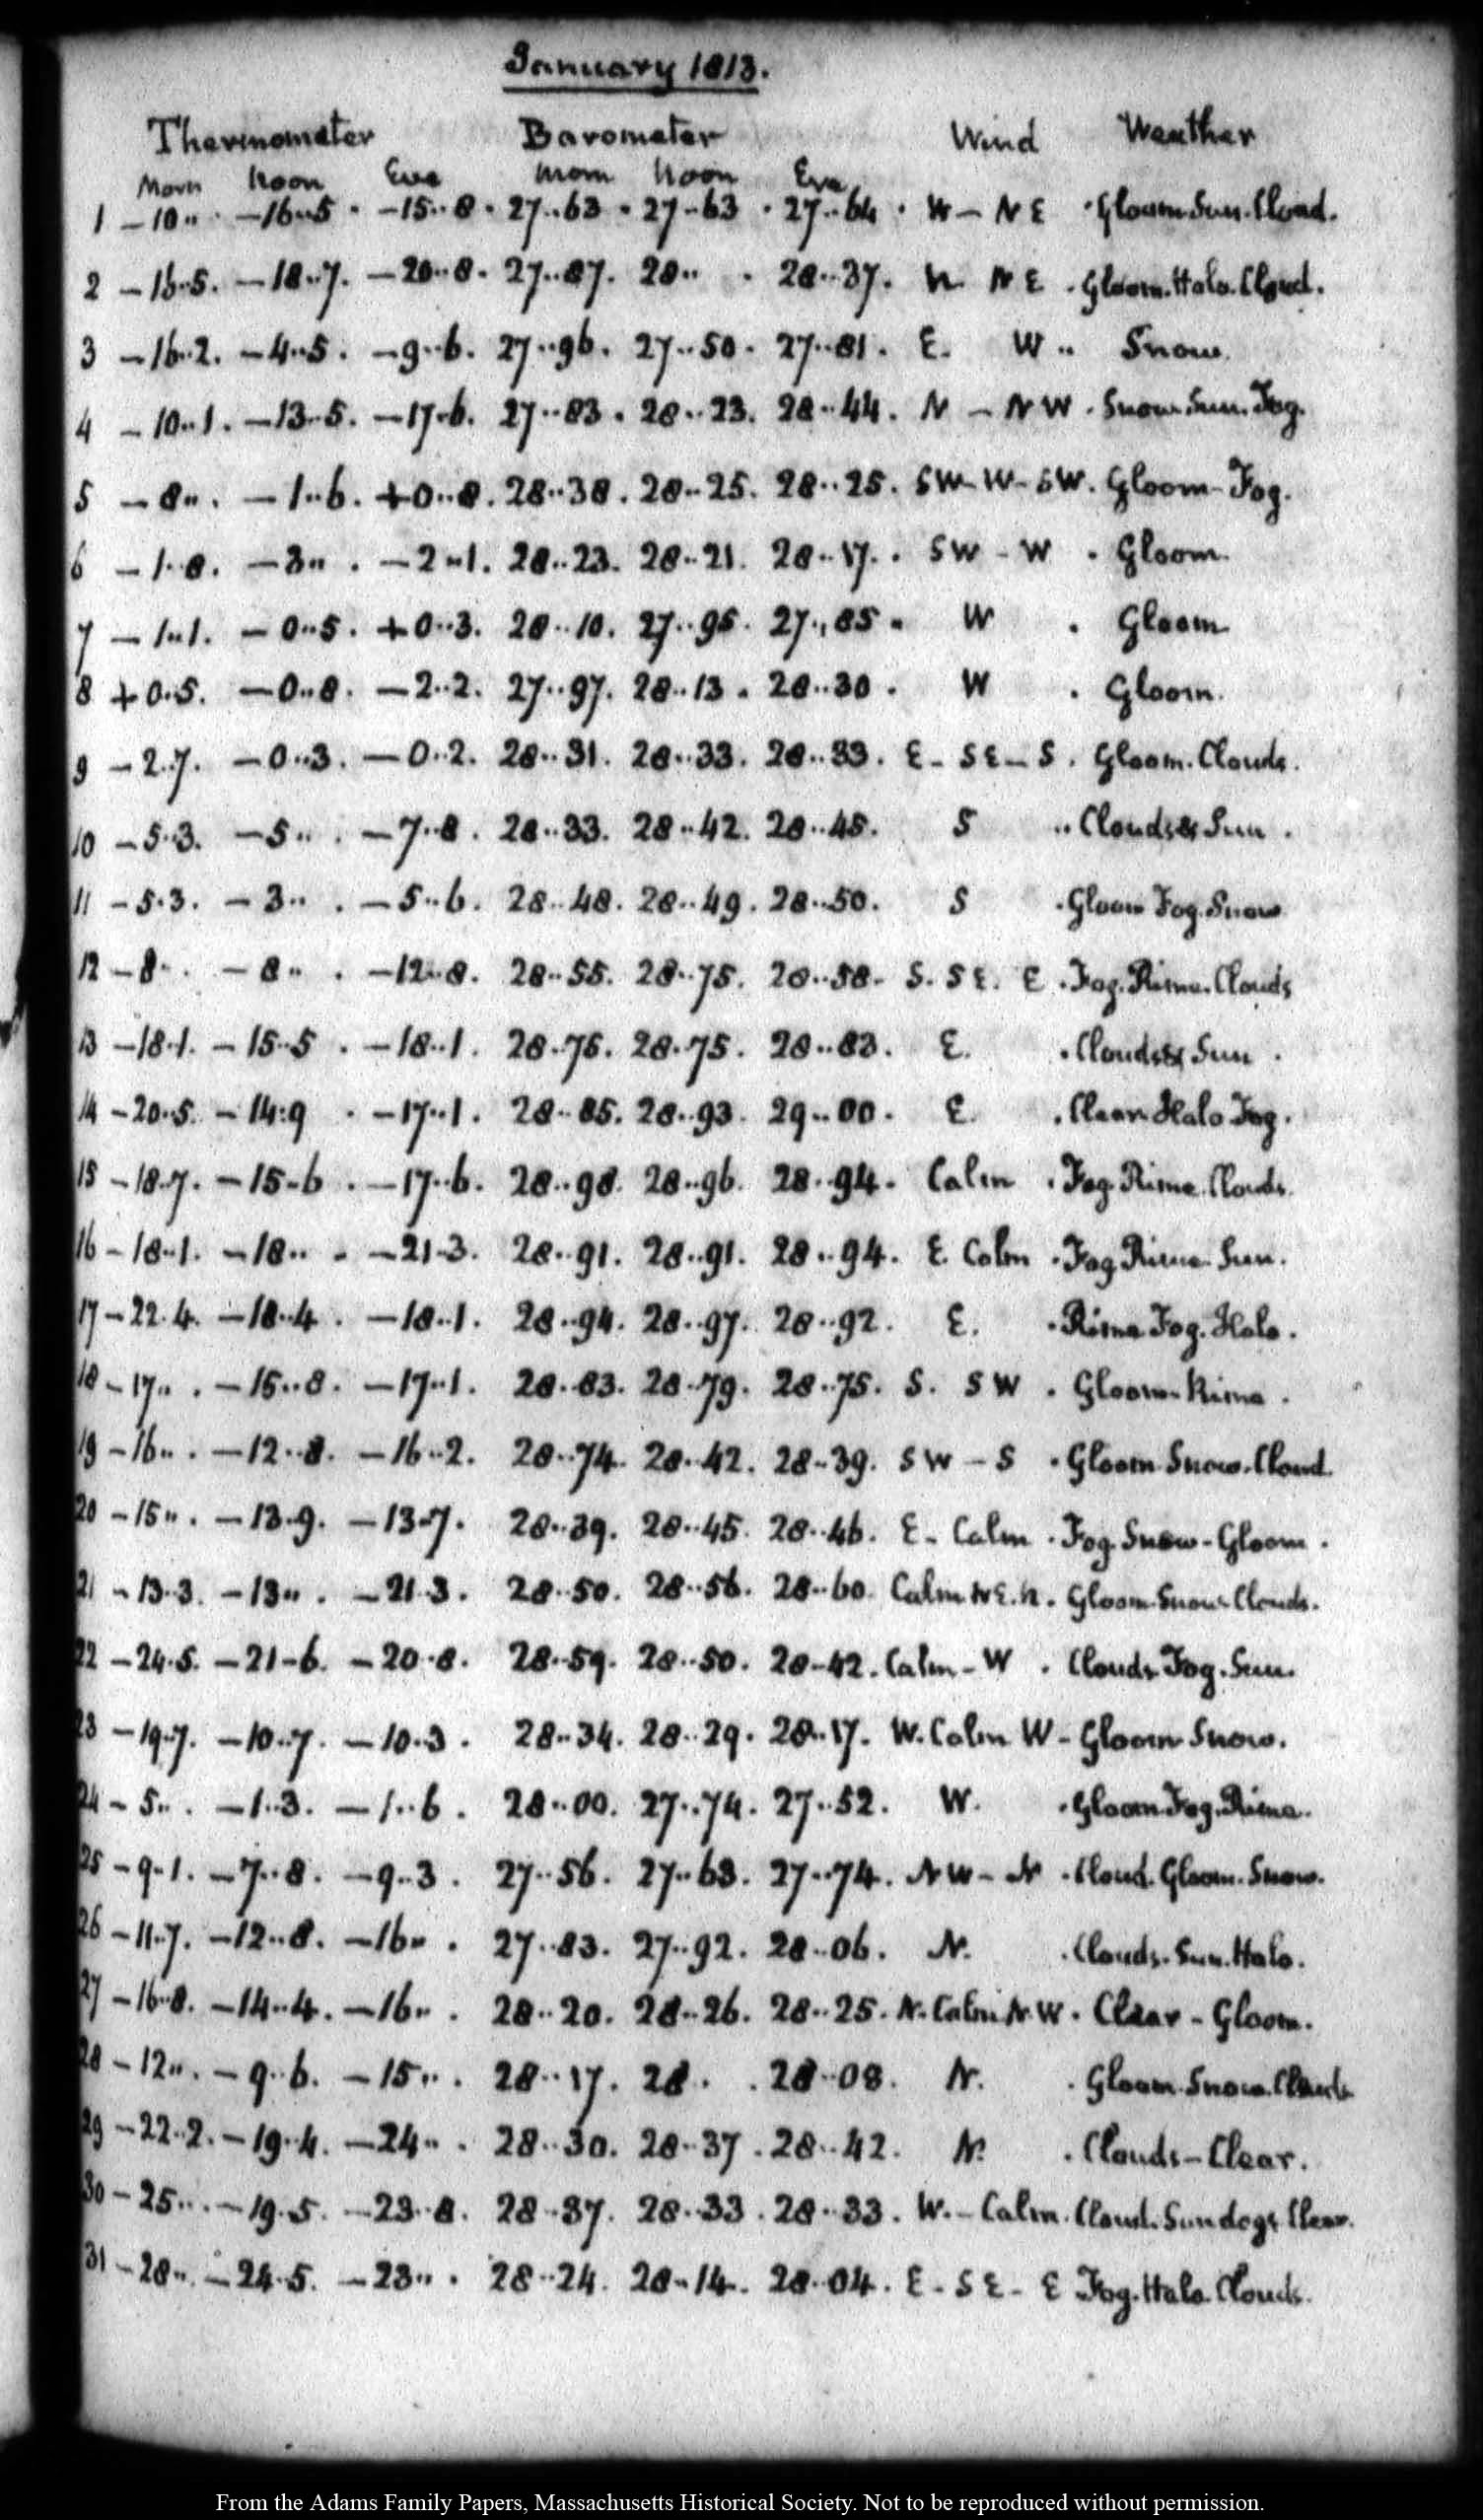 January 1813.
Thermometer Barometer Wind Weather
Morn Noon Eve Morn Noon Eve
1 –10.. –16..5 . –15..8 . 27..63 . 27..63 . 27..64 . W – NE . Gloom Sun. Cloud.
2 –16..5. –18..7. –20..8. 27..87. 28.. . 28..37. N NE . Gloom. Halo. Cloud.
3 –16..2. –4..5. –9..6. 27..96. 27..50. 27..81. E. W .. Snow.
4 –10..1. –13..5. –17..6. 27..83. 28..23. 28..44. N – NW . Snow Sun. Fog.
5 –8.. . –1..6. +0..8. 28..38. 28..25. 28..25. SW–W–SW. Gloom–Fog.
6 –1..8. –3.. . –2..1. 28..23. 28..21. 28..17. . SW – W . Gloom.
7 –1..1. –0..5. +0..3. 28..10. 27..95. 27..85. W . Gloom
8 +0.5. –0..8. –2..2. 27..97. 28..13. 28..30. W . Gloom.
9 –2.7. –0..3. –0..2. 28..31. 28..33. 28..33. E – SE – S. Gloom. Clouds.
10 –5.3. –5.. . –7..8. 28..33. 28..42. 28..45. S .. Clouds & Sun.
11 –5.3. –3.. . –5..6. 28..48. 28..49. 28..50. S . Gloom Fog. Snow
12 –8.. . –8.. . –12..8. 28..55. 28..75. 28..58. S. SE. E . Fog. Rime. Clouds
13 –18.1. –15..5 . –18..1. 28.75. 28.75. 28..83. E. . Clouds & Sun .
14 –20..5. –14..9 . –17..1. 28..85. 28..93. 29..00. E. . Clear Halo Fog.
15 –18.7. –15–6 . –17..6. 28..98. 28..96. 28..94. Calm . Fog Rime. Clouds.
16 –18..1. –18.. . –21.3. 28..91. 28..91. 28..94. E. Calm . Fog Rime. Sun.
17 –22.4. –18..4. –18..1. 28..94. 28..97. 28..92. E. . Rime Fog. Halo.
18 –17.. . –15..8. –17..1. 28..83. 28.79. 28..75. S. SW . Gloom. Rime .
19 –16.. . –12..8. –16..2. 28..74. 28..42. 28..39. SW – S . Gloom Snow. Cloud.
20 –15.. . –13.9. –13..7. 28..39. 28..45. 28..46. E – Calm . Fog. Snow – Gloom.
21 –13.3. –13.. . –21.3. 28..50. 28..56. 28..60. Calm NE. N. Gloom. Snow Clouds.
22 –24.5. –21–6. –20.8. 28..59. 28..50. 28–42. Calm – W . Clouds Fog. Sun.
23 –19.7. –10..7. –10.3 . 28..34. 28..29. 28..17. W. Calm W – Gloom Snow.
24 –5.. . –1..3. –1..6. 28..00. 27..74. 27..52. W. . Gloom Fog. Rime.
25 –9..1. –7..8. –9..3. 27..56. 27..63. 27..74. NW – N . Cloud. Gloom. Snow.
26 –11..7. –12..8. –16.. . 27..83. 27..92. 28..06. N. . Clouds. Sun. Halo.
27 –16..8. –14..4. –16.. . 28..20. 28..26. 28..25. N. Calm NW. Clear – Gloom.
28 –12.. . –9..6. –15.. . 28..17. 28. . 28..08. N. . Gloom. Snow. Clouds
29 –22.2. –19..4. –24.. . 28..30. 28..37 . 28..42. N. . Clouds – Clear.
30 –25.. . –19.5. –23..8. 28..37. 28..33 . 28..33. W. – Calm. Cloud. Sundogs Clear.
31 –28.. . –24.5. –23.. . 28..24. 28..14. 28.04. E – SE – E Fog. Halo. Clouds.
From the Adams Family Papers, Massachusetts Historical Society. Not to be reproduced without permission.